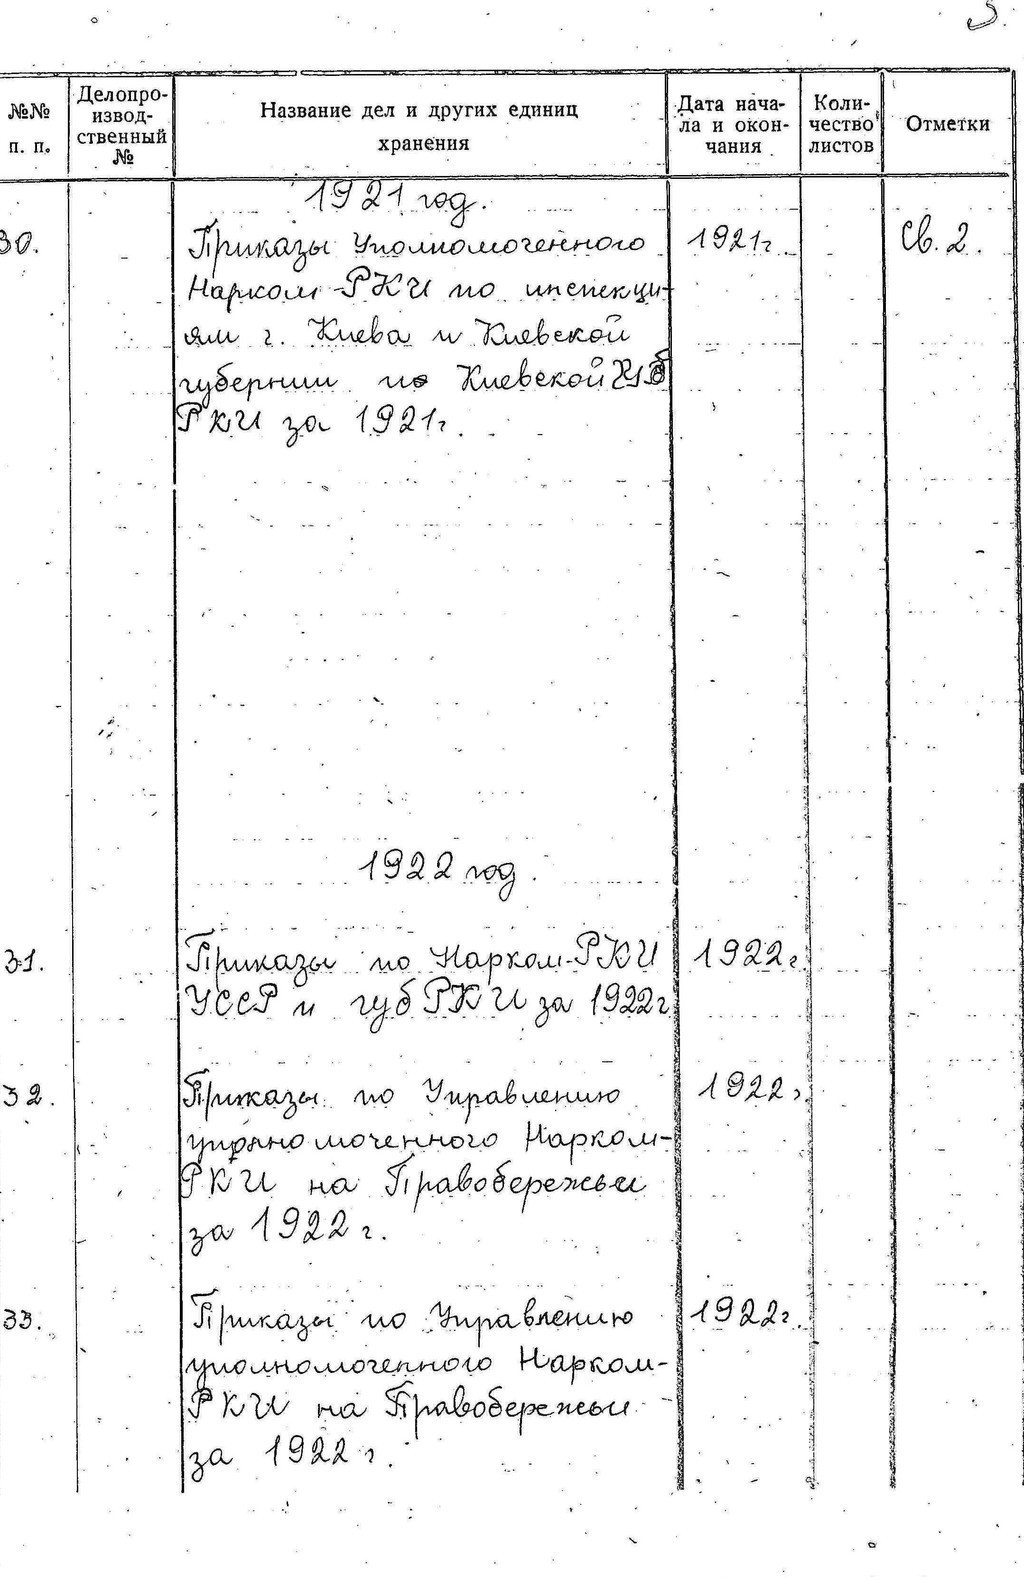 №№ п. п.
Делопро-
извод-
ственный
№
Название дел и других единиц
хранения
Дата нача-
ла и окон-
чания
Коли-
чество
листов
Отметки
1921 год.
30. Приказы Уполномоченного 1921г. Св. 2.
Нарком-РКИ по инспекци-
ям г. Киева и Киевской
губернии по Киевской
РКИ за 1921г.
1922 год.
31. Приказы по Нарком-РКИ 1922г.
УССР и губ РКИ за 1922г
32. Приказы по Управлению 1922г
уполномоченного Нарком-
РКИ на Правобережьи
за 1922 г.
33. Приказы по Управлению 1922г.
уполномоченного Нарком-
РКИ на Правобережьи
за 1922 г.